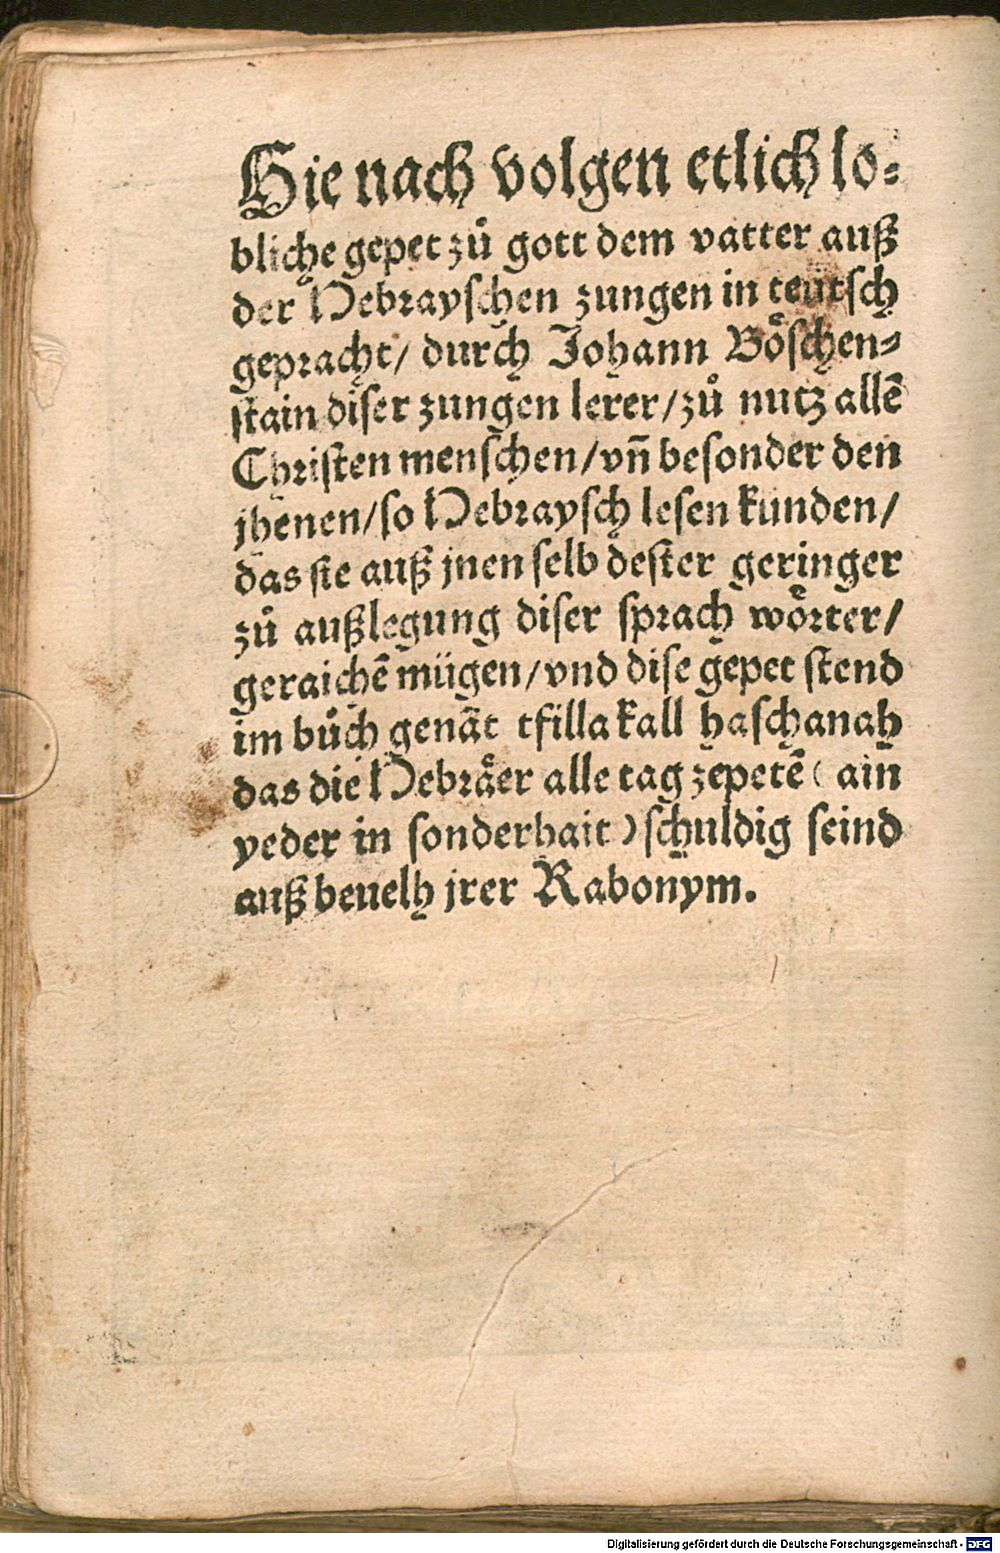 Hie nach volgen etlich lo⸗
bliche gepet zů gott dem vatter auß
der Hebrayschen zungen in teütsch
gepracht/ durch Johann Böschen⸗
stain diser zungen lerer/zů nutz allē
Christen menschen/vn̄ besonder den
jhenen/so Hebraysch lesen kunden/
das sie auß jnen selb dester geringer
zů außlegung diser sprach wörter/
geraichē mügen/vnd dise gepet stend
im bůch genāt tfilla kall haschanah
das die Hebräer alle tag zepetē (ain
yeder in sonderhait) schuldig seind
auß beuelh jrer Rabonym.
Digitalisierung gefördert durch die Deutsche Forschungsgemeinschaft - DFG